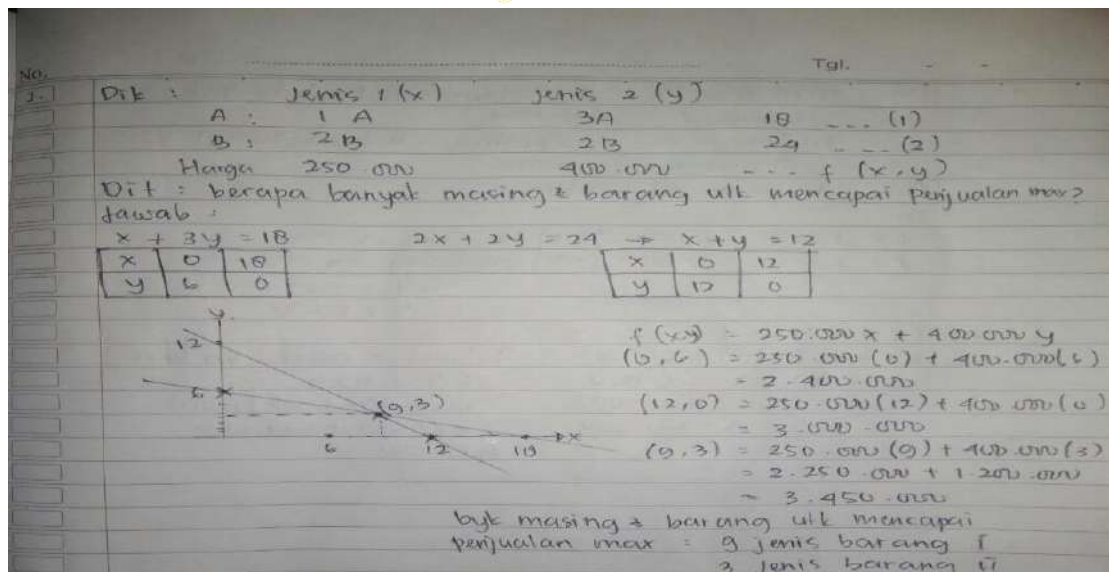 No. Tgl. - -
1. Dik : Jenis 1 (x) Jenis 2 (y)
A : 1 A 3A 18 --- (1)
B : 2 B 2 B 24 --- (2)
Harga 250.000 400.000 --- f (x,y)
Dit : berapa banyak masing2 barang utk mencapai penjualan max?
Jawab :
x + 3y = 18 2x + 2y = 24 → x + y = 12
x 0 18 x 0 12
y 6 0 y 12 0
y
12
6
(9,3)
6 12 18 x
f (x,y) = 250.000 x + 400.000 y
(0,6) = 250.000 (0) + 400.000 (6)
= 2.400.000
(12,0) = 250.000 (12) + 400.000 (0)
= 3.000.000
(9,3) = 250.000 (9) + 400.000 (3)
= 2.250.000 + 1.200.000
= 3.450.000
byk masing2 barang utk mencapai
penjualan max = 9 jenis barang I
3 jenis barang II